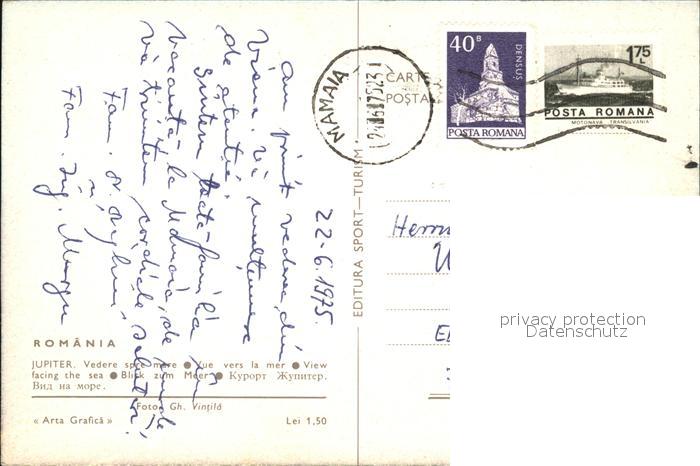 22-6.1975.
Am primit vederea din
Viena. Vă mulțumesc
de atenție.
Sîntem toată familia în
vacanță la Mamaia, de unde
vă trimitem cordiale salutări!
Fam. dr.
și
Fam. Ing. Murgu
ROMÂNIA
JUPITER. Vedere spre mare ● Vue vers la mer ● View
facing the sea ● Blick zum Meer ● Курорт Жупитер.
Вид на море.
Foto: Gh. Vințilă
« Arta Grafică »
Lei 1,50
EDITURA SPORT—TURISM
CARTE
POȘTALĂ
MAMAIA
40 B
DENSUS
POSTA ROMANA
1,75 L
POSTA ROMANA
MOTONAVA TRANSILVANIA
Herrn
privacy protection
Datenschutz